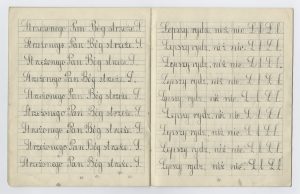 Strzeżonego Pan Bóg strzeże. S.
Strzeżonego Pan Bóg strzeże. S.
Strzeżonego Pan Bóg strzeże. S.
Strzeżonego Pan Bóg strzeże. S.
Strzeżonego Pan Bóg strzeże. S.
Strzeżonego Pan Bóg strzeże. S.
Strzeżonego Pan Bóg strzeże. S.
Strzeżonego Pan Bóg strzeże. S.
Strzeżonego Pan Bóg strzeże. S.
Lepszy rydz, niż nic. L ł L ł.
Lepszy rydz, niż nic. L ł L ł.
Lepszy rydz, niż nic. L ł L ł.
Lepszy rydz, niż nic. L ł L ł.
Lepszy rydz, niż nic. L ł L ł.
Lepszy rydz, niż nic. L ł L ł.
Lepszy rydz, niż nic. L ł L ł.
Lepszy rydz, niż nic. L ł L ł.
Lepszy rydz, niż nic. L ł L ł.